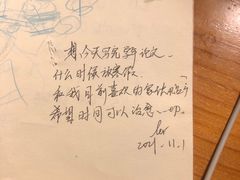 想今天写完学年论文.
什么时候放寒假.
和我目前喜欢的
希望时间可以治愈一切.
2021.11.1